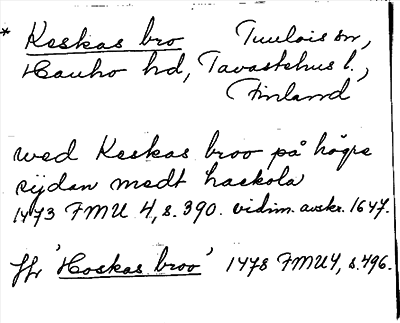 * Keskas bro Tuulois sn,
Hauho hd, Tavastehus l.,
Finland
wed Keskas broo på högre
sijdan medt haskola
1473 FMU 4, s. 390. vidim. avskr. 1647.
jfr 'Hoskas broo' 1478 FMU 4, s. 496.